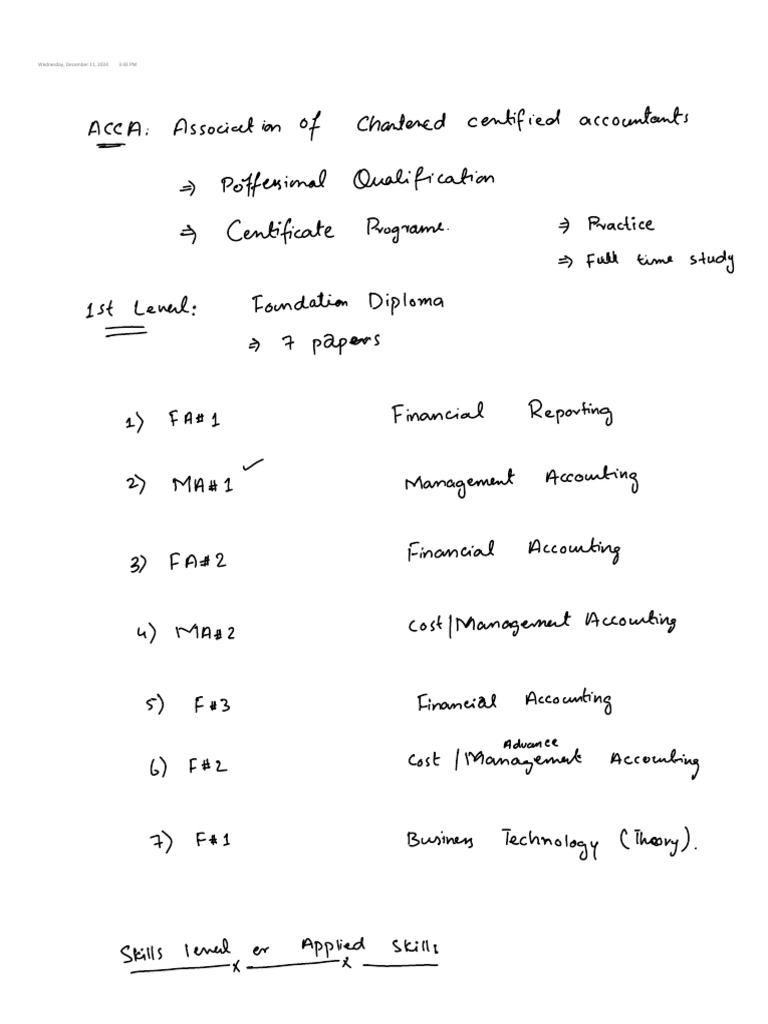 Wednesday, December 11, 2024 3:03 PM
ACCA: Association of Chartered certified accountants
⇒ Poffessional Qualification
⇒ Certificate Programe. ⇒ Practice
⇒ Full time study
1st Level: Foundation Diploma
⇒ 7 papers
1) FA#1 Financial Reporting
2) MA#1 ✓ Management Accounting
3) FA#2 Financial Accounting
4) MA#2 Cost/Management Accounting
5) F#3 Financial Accounting
Advance
6) F#2 Cost/Management Accounting
7) F#1 Business Technology (Theory).
Skills level or Applied Skills